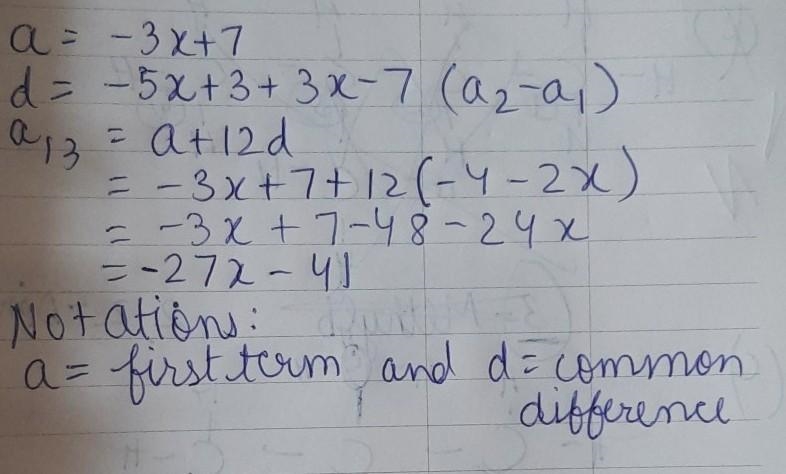 a = -3x+7
d = -5x+3+3x-7 (a₂-a₁)
a₁₃ = a+12d
= -3x+7+12(-4-2x)
= -3x+7-48-24x
= -27x-41
Notations:
a = first term and d = common
difference